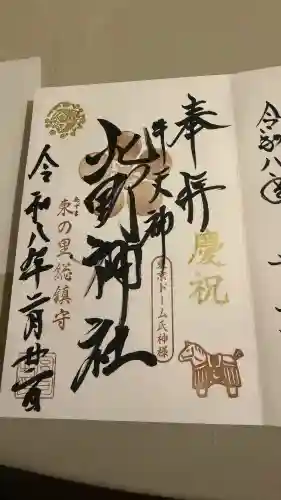 奉拝
慶祝
牛天神
東京ドーム氏神様
北野神社
あずま
東の里総鎮守
令和八年二月廿一日
令和八